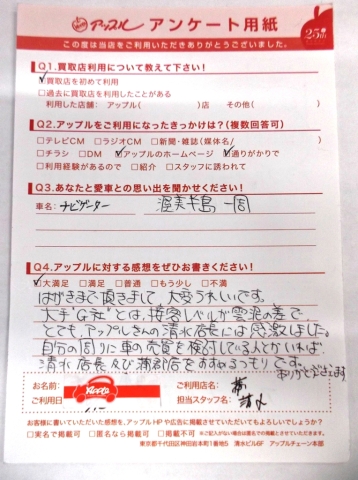 アップル アンケート用紙
25th
この度は当店をご利用いただきありがとうございました。
Q1.買取店利用について教えて下さい!
☑買取店を初めて利用
□過去に買取店を利用したことがある
利用した店舗：アップル( )店 その他( )
Q2.アップルをご利用になったきっかけは?(複数回答可)
□テレビCM □ラジオCM □新聞・雑誌(媒体名/ )
□チラシ □DM ☑アップルのホームページ ☑通りがかりで
□利用経験があるので □紹介 □スタッフに誘われて
Q3.あなたと愛車との思い出を聞かせください!
車名：ナビゲーター 渥美半島 一周
Q4.アップルに対する感想をぜひお書きください!
☑大満足 □満足 □普通 □もう少し □不満
はがきまで頂きまして、大変うれしいです。
大手"G社"とは、接客レベルが雲泥の差で、
とても、アップルさんの清水店長には感激しました。
自分の周りに車の売買を検討している人がいれば
清水店長及び蒲郡店をすすめるつもりです。
ありがとうございます
お名前
ご利用日
Apple
ご利用店名：
担当スタッフ名：清水
お客様に書いていただいた感想を、アップルHPや広告に掲載させていただいてもよろしいでしょうか?
□実名で掲載可 □匿名なら掲載可 □掲載不可 ※ご記入がない場合は匿名での掲載とさせていただきます。
東京都千代田区神田岩本町1番地5 清水ビル6F アップルチェーン本部